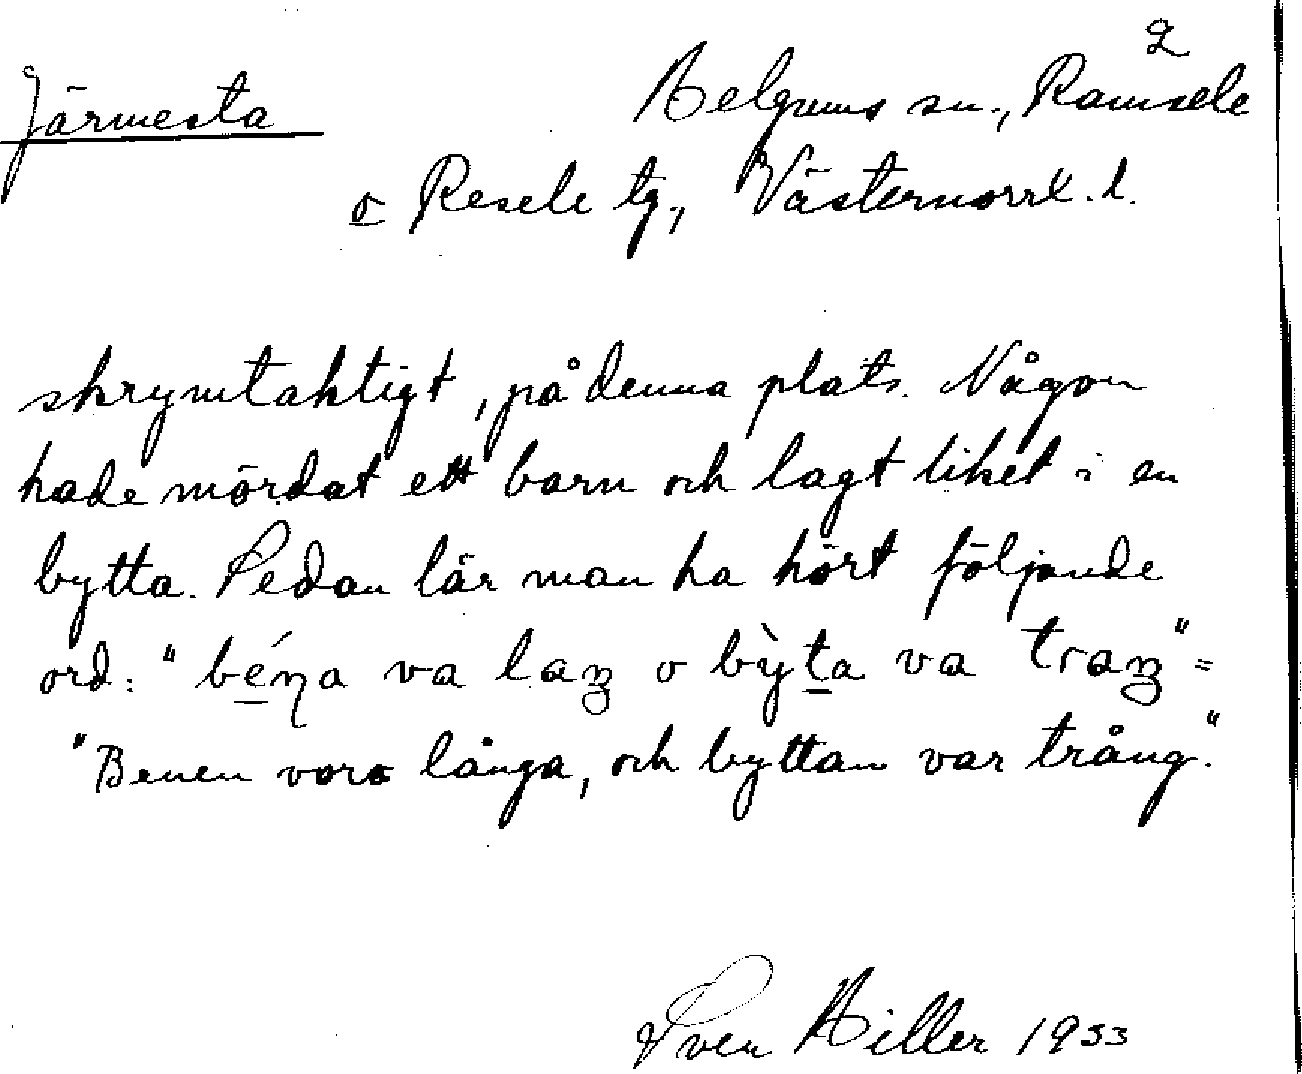 2
Järmesta Helgums sn., Ramsele
o Resele tg., Västernorrl. l.
skrymtaktigt, på denna plats. Någon
hade mördat ett barn och lagt liket i en
bytta. Sedan lär man ha hört följande
ord: "béna va laŋ o bỳta va traŋ" =
"Benen voro långa, och byttan var trång."
Sven Hiller 1933